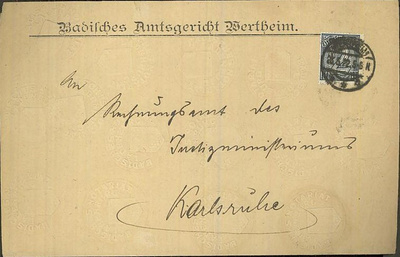 Badisches Amtsgericht Wertheim.
An
Rechnungsamt des
Justizministeriums
Karlsruhe